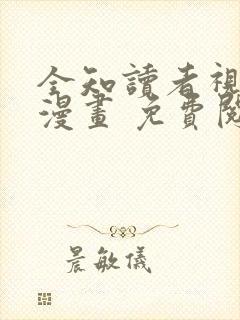 全知讀者視
漫畫 免費閱
晨敏儀